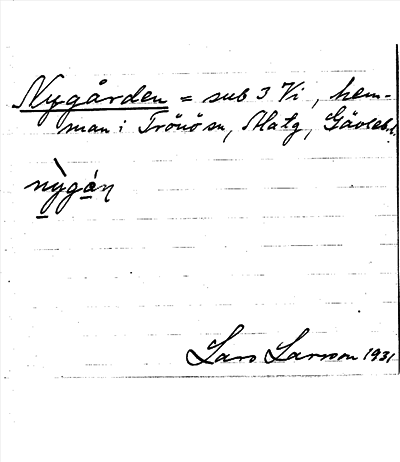 Nygården = sub 3 Vi, hem-
man i Trönö sn, Matg, Gävleb.l.
nỳgán
Lars Larsson 1931